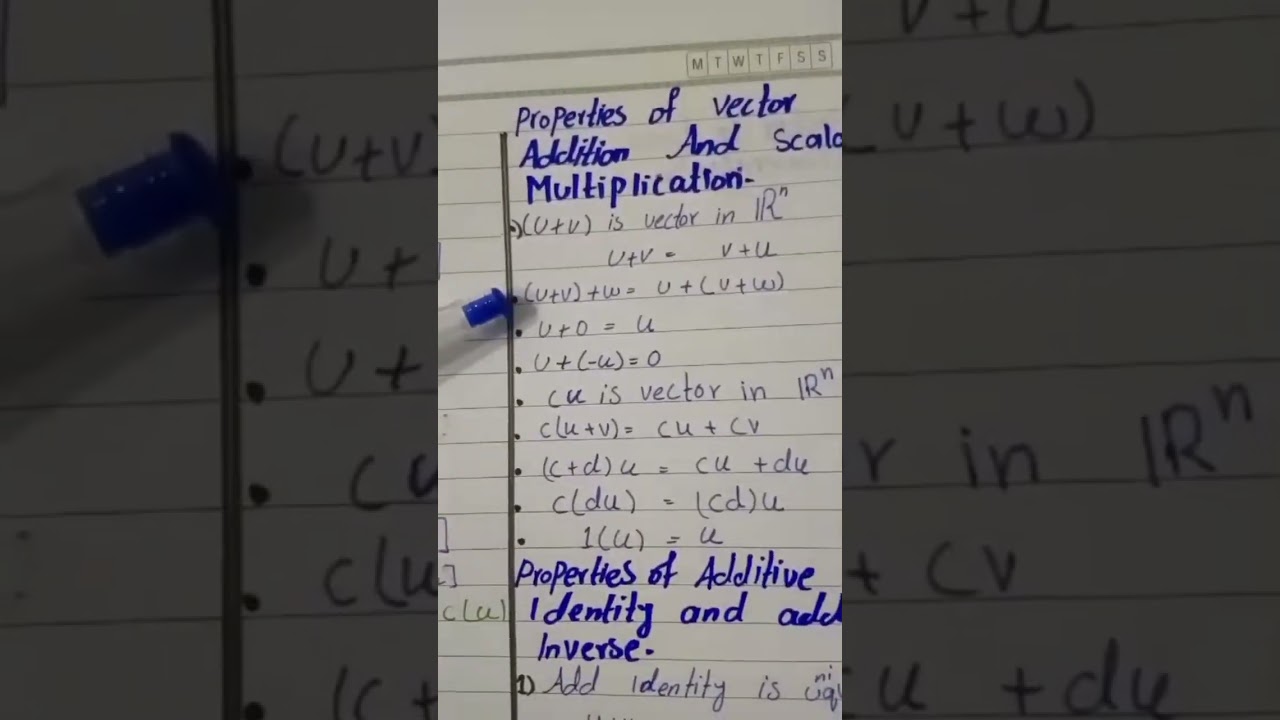 M T W T F S S
Properties of vector
Addition And Scala
Multiplication.
(U+V) is vector in ℝⁿ
U+V = V+U
• (U+V)+W = U+(V+W)
• U+0 = U
• U+(-U)=0
• CU is vector in ℝⁿ
• C(U+V)= CU + CV
• (C+d)U = CU +dU
• C(dU) = (Cd)U
• 1(U) = U
Properties of Additive
Identity and add
Inverse.
1) Add Identity is
C(U)